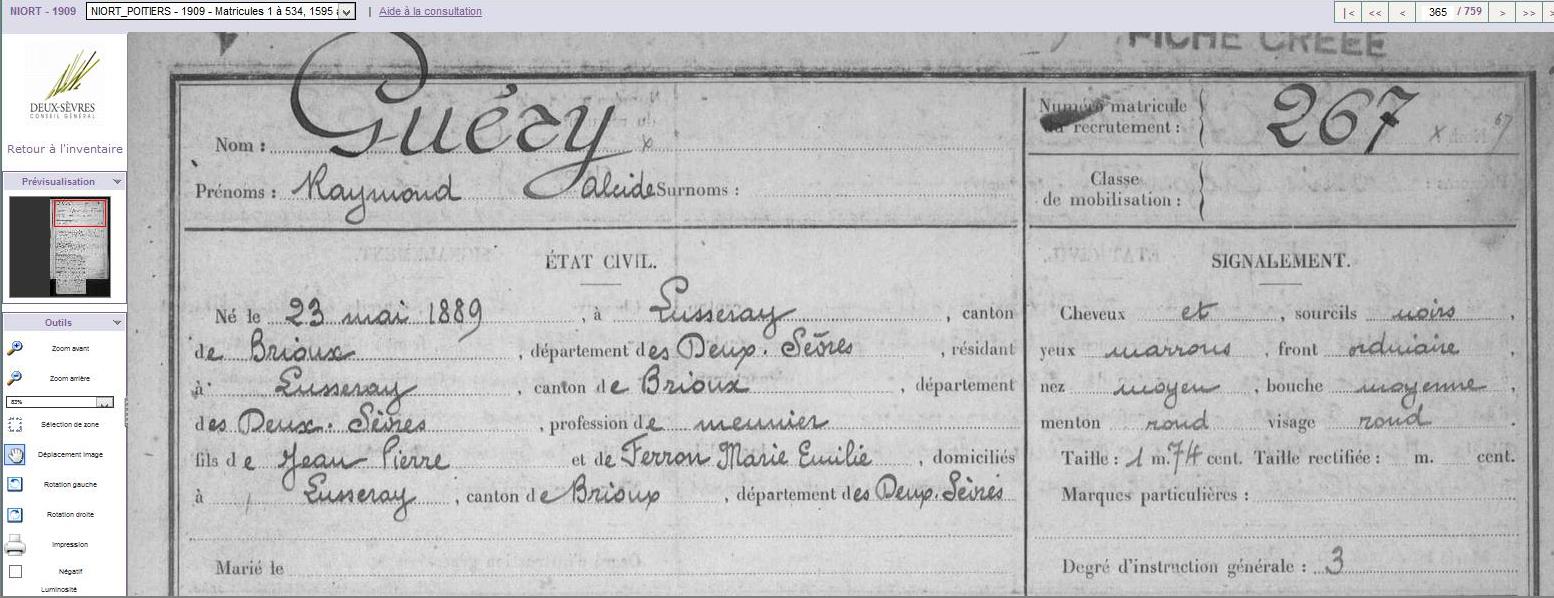 NIORT - 1909 NIORT_POITIERS - 1909 - Matricules 1 à 534, 1595 | Aide à la consultation |< << < 365 / 759 > >>
FICHE CRÉÉE
DEUX-SÈVRES
CONSEIL GÉNÉRAL
Retour à l'inventaire
Prévisualisation
Outils
Zoom avant
Zoom arrière
83%
Sélection de zone
Déplacement image
Rotation gauche
Rotation droite
Impression
Négatif
Luminosité
Nom : Guéry
Prénoms : Raymond Alcide Surnoms :
Numéro matricule
du recrutement : 267
Classe
de mobilisation :
ÉTAT CIVIL.
Né le 23 mai 1889, à Lusseray, canton
de Brioux, département des Deux-Sèvres, résidant
à Lusseray, canton de Brioux, département
des Deux-Sèvres, profession de meunier
fils de Jean Pierre et de Ferron Marie Emilie, domiciliés
à Lusseray, canton de Brioux, département des Deux-Sèvres
Marié le
SIGNALEMENT.
Cheveux et, sourcils noirs,
yeux marrons, front ordinaire,
nez moyen, bouche moyenne,
menton rond visage rond.
Taille : 1 m. 74 cent. Taille rectifiée : m. cent.
Marques particulières :
Degré d'instruction générale : 3